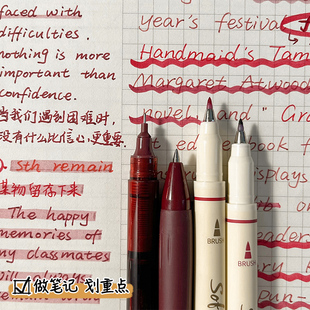 faced with
difficulties.
nothing is more
important than
confidence.
当我们遇到困难时,
没有什么比信心更重要.
Sth remain
某物留存下来
The happy
memories of
my classmates
will always
year's festival
Handmaid's Tam
Margaret Atwood
novel and " Gra
ebook f
isplays
BRUSH
BRUSH
Sof
做笔记 划重点